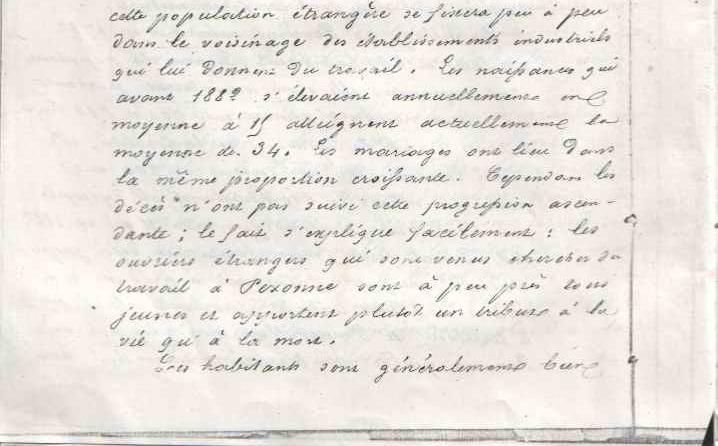 cette population étrangère se fixera peu à peu
dans le voisinage des établissements industriels
qui lui donnent du travail. Les naissances qui
avant 1882 s'élevaient annuellement en
moyenne à 15 atteignent actuellement la
moyenne de 34. Les mariages ont lieu dans
la même proportion croissante. Cependant les
décès n'ont pas suivi cette progression ascen-
dante ; le fait s'explique facilement : les
ouvriers étrangers qui sont venus chercher du
travail à Pexonne sont à peu près tous
jeunes et apportent plutôt un tribut à la
vie qu'à la mort.
Les habitants sont généralement bien